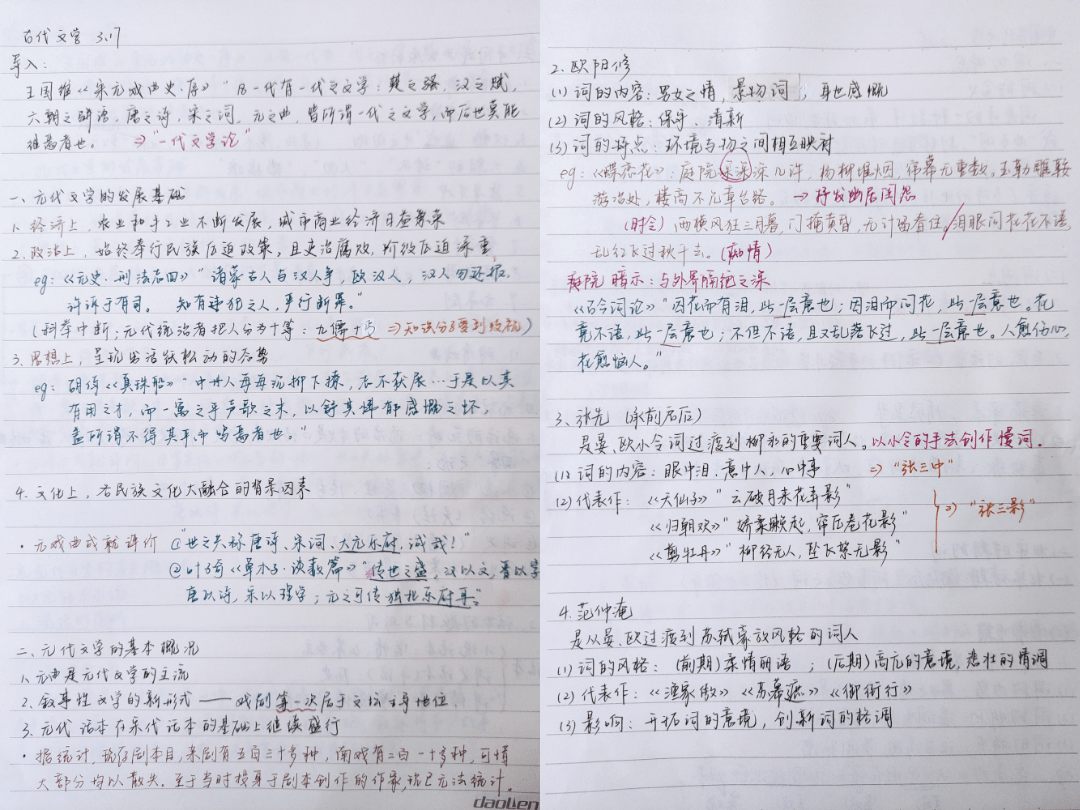 古代文学 3.17
导入：
王国维《宋元戏曲史·序》"凡一代有一代之文学：楚之骚，汉之赋，
六朝之骈语，唐之诗，宋之词，元之曲，皆所谓一代之文学，而后世莫能
继焉者也。 ⇒"一代文学论"
一、元代文学的发展基础
1. 经济上，农业和手工业不断发展，城市商业经济日益繁荣
2. 政治上，始终奉行民族压迫政策，且吏治腐败，阶级压迫深重
eg：《元史·刑法志四》"诸蒙古人与汉人争，殴汉人，汉人勿还报，
许诉于有司。 知有违犯之人，严行断罪。"
（科举中断；元代统治者把人分为十等：九儒十丐 ⇒知识分子受到歧视）
3. 思想上，呈现出活跃松动的态势
eg：胡侍《真珠船》"中州人每每沉抑下僚，志不获展…于是以其
有用之才，而一寓之乎声歌之末，以舒其怫郁感慨之怀，
盖所谓不得其平而鸣焉者也。"
4. 文化上，各民族文化大融合的背景因素
·元戏曲成就评价 @"世之共称唐诗、宋词、大元乐府，诚哉！"
@叶子奇《草木子·谈薮篇》"传世之盛，汉以文，晋以字，
唐以诗，宋以理学；元之可传，独北乐府耳。"
二、元代文学的基本概况
1. 元曲是元代文学的主流
2. 叙事性文学的新形式——戏剧第一次居于文坛主导地位.
3. 元代话本在宋代话本的基础上继续盛行
·据统计，现存剧本目，杂剧有五百三十多种，南戏有二百一十多种，可惜
大部分均以散失。至于当时投身于剧本创作的作家，现已无法统计。
daolien
2. 欧阳修
(1) 词的内容：男女之情，景物词，身世感慨
(2) 词的风格：保守、清新
(3) 词的特点：环境与物之间相互映衬
eg：《蝶恋花》：庭院深深深几许，杨柳堆烟，帘幕无重数，玉勒雕鞍
游冶处，楼高不见章台路。 →抒发幽居闺怨
（时令）雨横风狂三月暮，门掩黄昏，无计留春住，泪眼问花花不语，
乱红飞过秋千去。（痴情）
庭院 暗示：与外界隔绝之深
《古今词论》"因花而有泪，此一层意也；因泪而问花，此一层意也。花
竟不语，此一层意也；不但不语，且又乱落飞过，此一层意也。人愈伤心，
花愈恼人。"
3. 张先 （承前启后）
是晏、欧小令词过渡到柳永的重要词人。以小令的手法创作慢词.
(1) 词的内容：眼中泪、意中人、心中事 ⇒"张三中"
(2) 代表作：《天仙子》"云破月来花弄影"
《归朝欢》"娇柔懒起，帘压卷花影" ⇒"张三影"
《剪牡丹》"柳径无人，坠飞絮无影"
4. 范仲淹
是从晏、欧过渡到苏轼豪放风格的词人
(1) 词的风格：（前期）柔情丽语；（后期）高亢的意境，悲壮的情调
(2) 代表作：《渔家傲》《苏幕遮》《御街行》
(3) 影响：开拓词的意境，创新词的格调